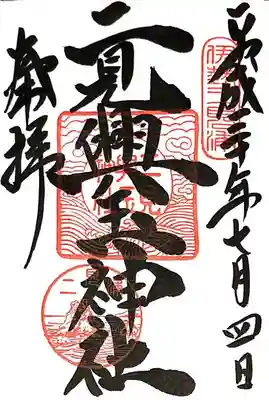 平成二十年七月四日
伊勢二見浦
二見興玉神社
奉拝